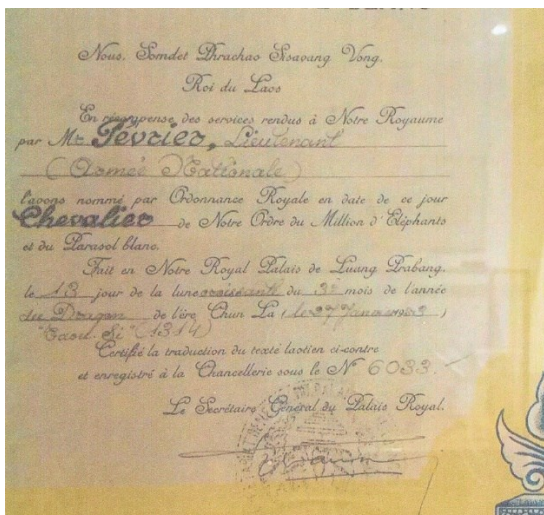 Nous, Somdet Phrachao Sisavang Vong,
Roi du Laos
En récompense des services rendus à Notre Royaume
par Mr Février, Lieutenant
(Armée Nationale)
l'avons nommé par Ordonnance Royale en date de ce jour
Chevalier de Notre Ordre du Million d'Eléphants
et du Parasol blanc.
Fait en Notre Royal Palais de Luang Prabang,
le 13 jour de la lune croissante du 3e mois de l'année
du Dragon de l'ère Chun La (le 27 Janvier
(1314)
Certifié la traduction du texte laotien ci-contre
et enregistré à la Chancellerie sous le No 6033.
Le Secrétaire Général du Palais Royal.